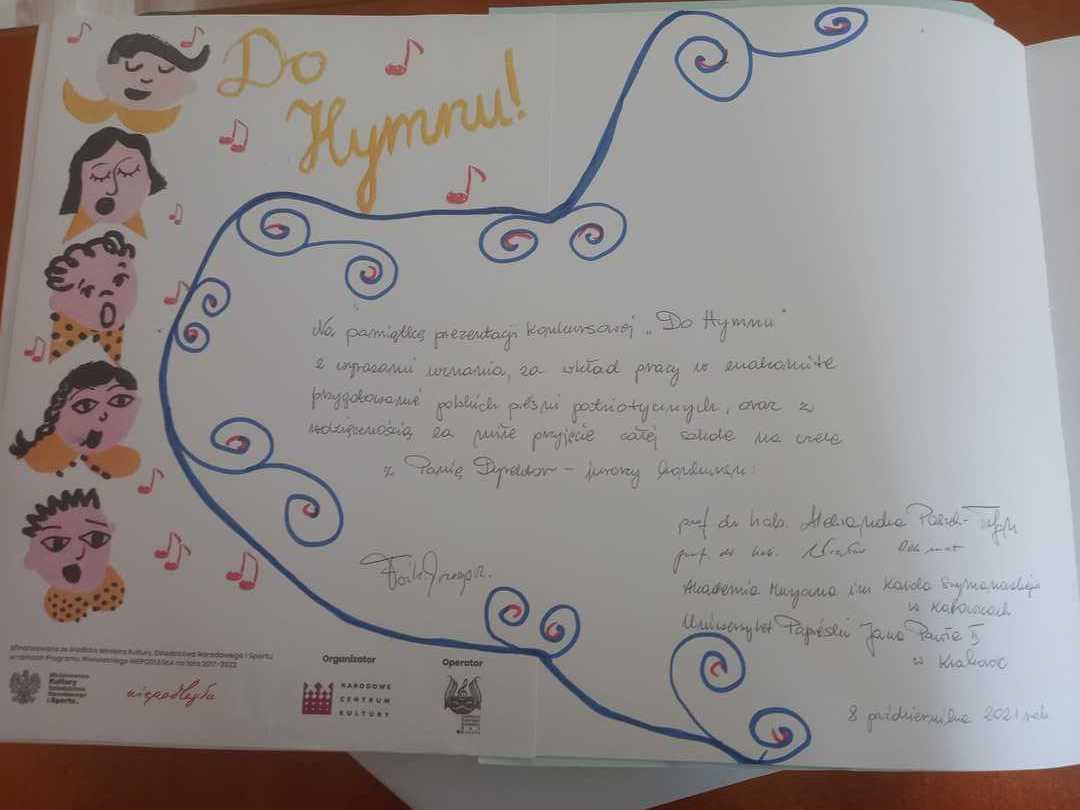 Do
Hymnu!
Na pamiątkę prezentacji konkursowej „Do Hymnu"
z wyrazami uznania, za wkład pracy w znakomite
przygotowanie polskich pieśni patriotycznych, oraz z
wdzięcznością za miłe przyjęcie całej szkole na czele
z Panią Dyrektor – jurorzy konkursu:
prof. dr hab. Aleksandra
prof. dr hab.
Akademia Muzyczna im Karola Szymanowskiego
w Katowicach
Uniwersytet Papieski Jana Pawła II
w Krakowie
8 października 2021 rok
sfinansowano ze środków Ministra Kultury, Dziedzictwa Narodowego i Sportu
w ramach Programu Wieloletniego NIEPODLEGŁA na lata 2017-2022
Ministerstwo
Kultury
Dziedzictwa
Narodowego
i Sportu
niepodległa
Organizator
NARODOWE
CENTRUM
KULTURY
Operator